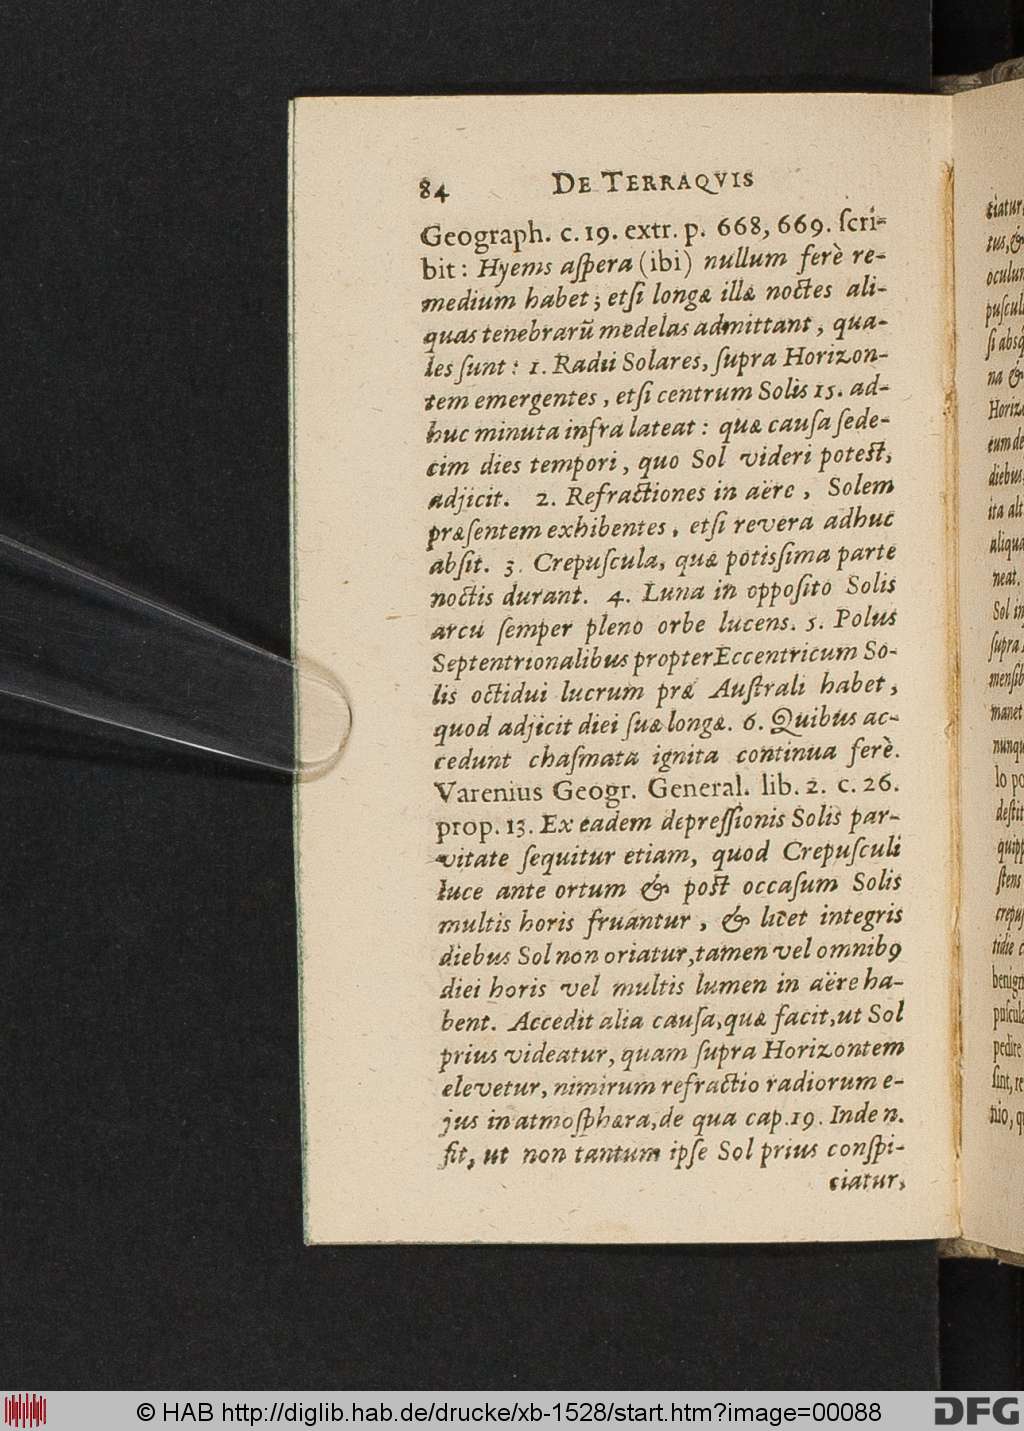 84 DE TERRAQVIS
Geograph. c. 19. extr. p. 668, 669. ſcri-
bit: Hyems aſpera (ibi) nullum ferè re-
medium habet; etſi longæ illæ noctes ali-
quas tenebrarũ medelas admittant, qua-
les ſunt: 1. Radii Solares, ſupra Horizon-
tem emergentes, etſi centrum Solis 15. ad-
huc minuta infra lateat: quæ cauſa ſede-
cim dies tempori, quo Sol videri poteſt,
adjicit. 2. Refractiones in aëre, Solem
præſentem exhibentes, etſi revera adhuc
abſit. 3. Crepuſcula, quæ potiſſima parte
noctis durant. 4. Luna in oppoſito Solis
arcu ſemper pleno orbe lucens. 5. Polus
Septentrionalibus propter Eccentricum So-
lis octidui lucrum præ Auſtrali habet,
quod adjicit diei ſuæ longæ. 6. Quibus ac-
cedunt chaſmata ignita continua ferè.
Varenius Geogr. General. lib. 2. c. 26.
prop. 13. Ex eadem depreſſionis Solis par-
vitate ſequitur etiam, quod Crepuſculi
luce ante ortum & poſt occaſum Solis
multis horis fruantur, & licet integris
diebus Sol non oriatur, tamen vel omnibꝰ
diei horis vel multis lumen in aëre ha-
bent. Accedit alia cauſa, quæ facit, ut Sol
prius videatur, quam ſupra Horizontem
elevetur, nimirum refractio radiorum e-
jus in atmoſphæra, de qua cap. 19. Inde n.
fit, ut non tantum ipſe Sol prius conſpi-
ciatur,
ciatur,
tus, &
oculum
puſcul
ſi absq
na &
Horizo
cum de
diebus
ita alt
aliqua
neat.
Sol in
ſupra
menſib
manet
nunqu
lo po
deſtit
quipp
ſtens
crepuſ
tidie c
benign
puſcula
pedire
ſint, re
tuo, q
© HAB http://diglib.hab.de/drucke/xb-1528/start.htm?image=00088
DFG